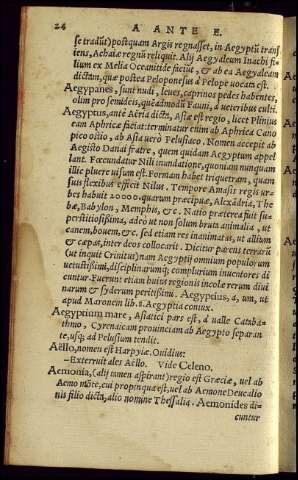 24 A ANTE E.
se tradūt) postquam Argis regnasset, in Aegyptū trans
iens, Achaiæ regnū reliquit. Alij Aegyaleum Inachi fi
lium ex Melia Oceanitide faciūt, & ab ea Aegyaleam
dictam, quæ postea Peloponesus à Pelope vocata est.
Aegypanes, sunt nudi, leues, caprinos pedes habentes,
olim pro semideis, quēadmodū Fauni, à veteribus culti.
Aegyptus, antè Aëria dicta, Asiæ est regio, licet Plinius
eam Aphricæ faciat: terminatur enim ab Aphrica Cano
pico ostio, ab Asia verò Pelusiaco. Nomen accepit ab
Aegisto Danai fratre, quem quidam Aegyptum appel
lant. Fœcundatur Nili inundatione, quoniam nunquam
illic pluere visum est. Formam habet triquetram, quam
suis flexibus efficit Nilus. Tempore Amasis regis ur=
bes habuit 20000. quarum præcipuæ, Alexādria, The
bæ, Babylon, Memphis, &c. Natio præterea fuit su=
perstitiosissima, adeò ut non solum bruta animalia, ut
canem, bouem, &c. sed etiam res inanimatas, ut allium
& cæpas, inter deos collocarit. Dicitur parens terrarū
(ut inquit Crinitus) nam Aegyptij omnium populorum
uetustissimi, disciplinarumq; complurium inuentores di
cuntur. Fuerunt etiam huius regionis incolæ rerum diui
narum & syderum peritissimi. Aegyptius, a, um, ut
apud Maronem lib. 8. Aegyptia coniux.
Aegyptium mare, Asiatici pars est, à valle Cataba=
thmo, Cyrenaicam prouinciam ab Aegypto separan
te, usq; ad Pelusium tendit.
Aëllo, nomen est Harpyiæ. Ouidius:
–Exterruit ales Aëllo. Vide Celeno.
Aemonia, (alij tamen aspirant) regio est Græciæ, uel ab
Aemo mōte, cui propinqua est, uel ab Aemone Deucalio
nis filio dicta, alio nomine Thessalia. Aemonides di=
cuntur